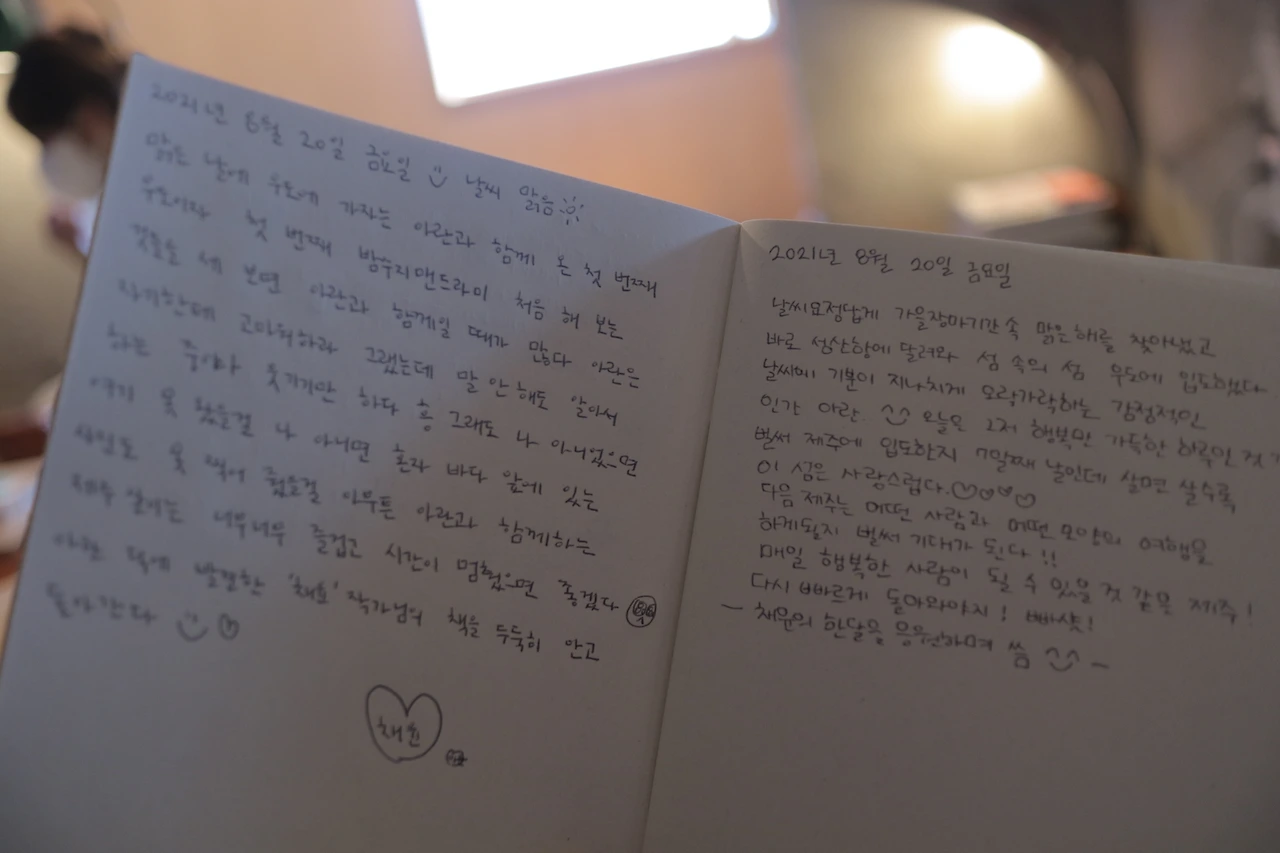 2021년 8월 20일 금요일 날씨 맑음
맑은 날에 우도에 가자는 아란과 함께 온 첫 번째
우도이자 첫 번째 밤수지맨드라미 처음 해 보는
것들을 세 보면 아란과 함께일 때가 많다 아란은
자기한테 고마워하라 그랬는데 말 안 해도 알아서
하는 중이다 웃기기만 하다 흥 그래도 나 아니었으면
여기 못 왔을걸 나 아니면 혼자 바다 앞에 있는
사진도 못 찍어 줬을걸 아무튼 아란과 함께하는
제주 살이는 너무너무 즐겁고 시간이 멈췄으면 좋겠다
아란 덕에 발견한 '채윤' 작가님의 책을 두둑히 안고
돌아간다
채윤
2021년 8월 20일 금요일
날씨요정답게 가을장마기간 속 맑은 해를 찾아냈고
바로 성산항에 달려와 섬 속의 섬 우도에 입도했다.
날씨에 기분이 지나치게 오락가락하는 감정적인
인간 아란. ^^ 오늘은 그저 행복만 가득한 하루인 것
벌써 제주에 입도한지 7일째 날인데 살면 살수록
이 섬은 사랑스럽다.♡♡♡♡
다음 제주는 어떤 사람과 어떤 모양의 여행을
하게될지 벌써 기대가 된다!!
매일 행복한 사람이 될 수 있을 것 같은 제주!
다시 빠르게 돌아와야지! 빠샷!
- 채윤의 한달을 응원하며 씀 ^^ -